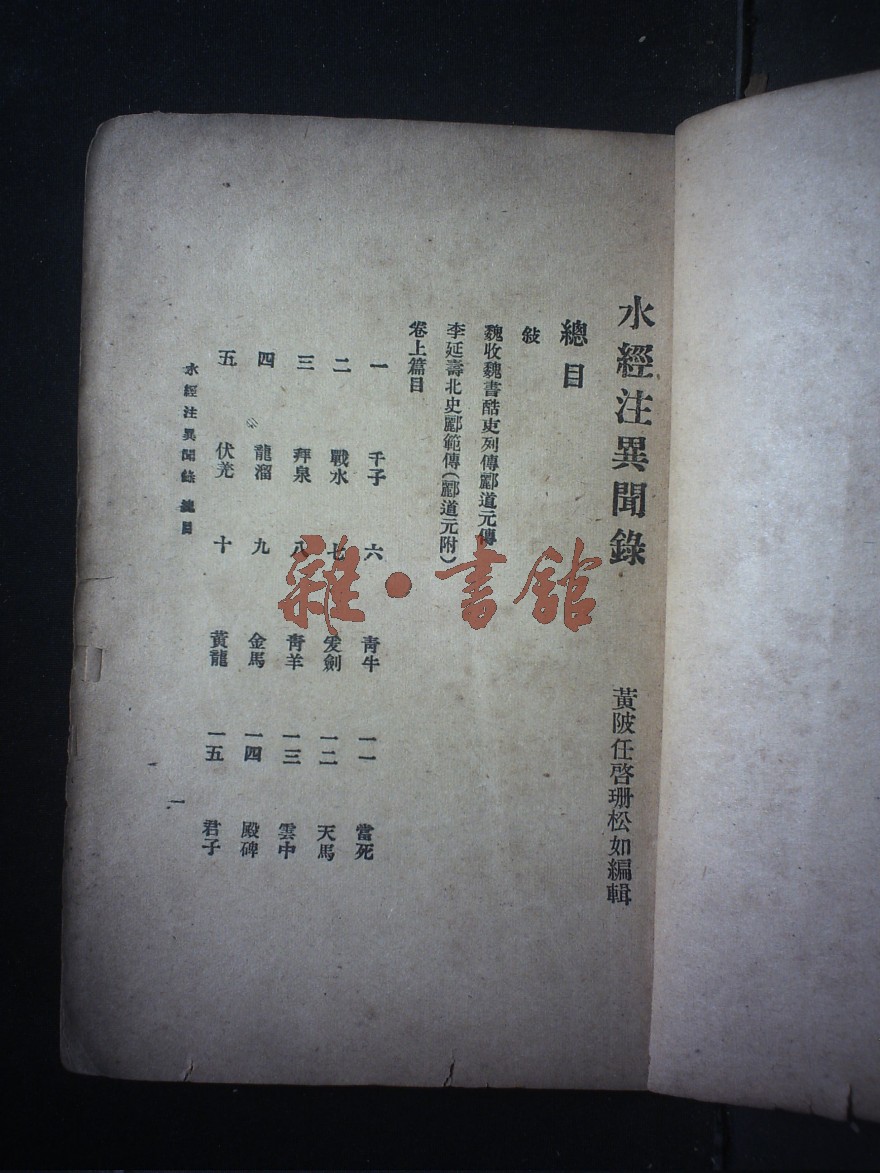 水經注異聞錄
黃陂任啓珊松如編輯
總目
敍
魏收魏書酷吏列傳酈道元傳
李延壽北史酈範傳（酈道元附）
卷上篇目
一 千子 六 青牛 一一 當死
二 戰水 七 爰劍 一二 天馬
三 拜泉 八 青羊 一三 雲中
四 龍溜 九 金馬 一四 殿碑
五 伏羌 十 黃龍 一五 君子
水經注異聞錄 總目
一
雜·書館